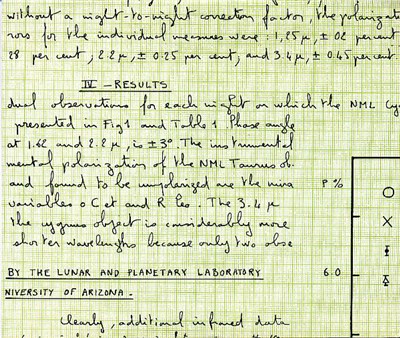 without a night-to-night correction factor, the polarizati
rors for the individual measures were: 1,25 μ, ± 02 percent
28 per cent, 2.2 μ, ± 0.25 per cent, and 3.4 μ, ± 0.45 per cent.
IV - RESULTS
dual observations for each night on which the NML Cyg
presented in Fig 1 and Table 1. Phase angle
at 1.62 and 2.2 μ, is ± 3°. The instrumental
mental polarization of the NML Taurus ob-
and found to be unpolarized are the mira
variables o Cet and R Leo. The 3.4 μ
P %
the cygnus object is considerably more
shorter wavelengths because only two obse
BY THE LUNAR AND PLANETARY LABORATORY
6.0
NIVERSITY OF ARIZONA.
Clearly, additional infrared data